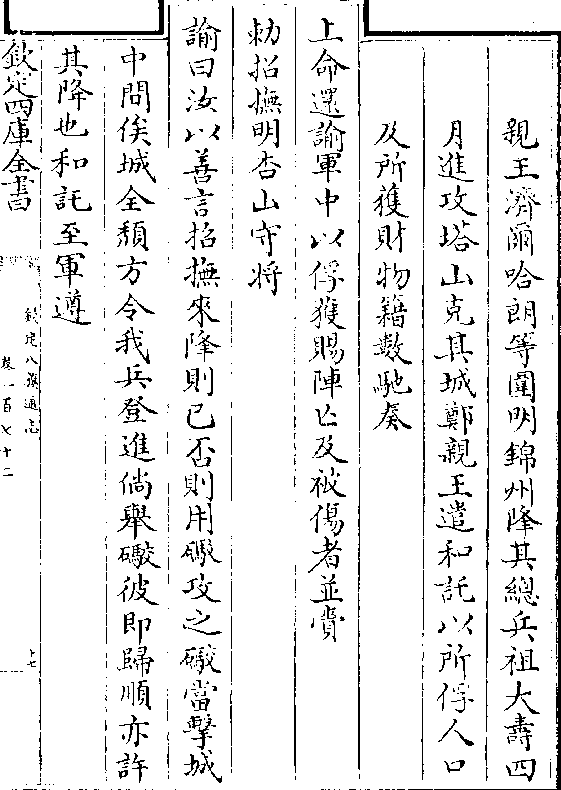 親王濟爾哈朗等圍明錦州降其總兵祖大壽四
月進攻塔山克其城鄭親王遣和託以所俘人口
及所獲財物籍數馳奏
上命還諭軍中以俘獲賜陣亡及被傷者並賫
勅招撫明杏山守將
諭曰汝以善言招撫來降則已否則用礮攻之礮當擊城
中間俟城全頽方令我兵登進倘舉礮彼即歸順亦許
其降也和託至軍遵
欽定四庫全書
欽定八旗通志
卷一百七十二
十七